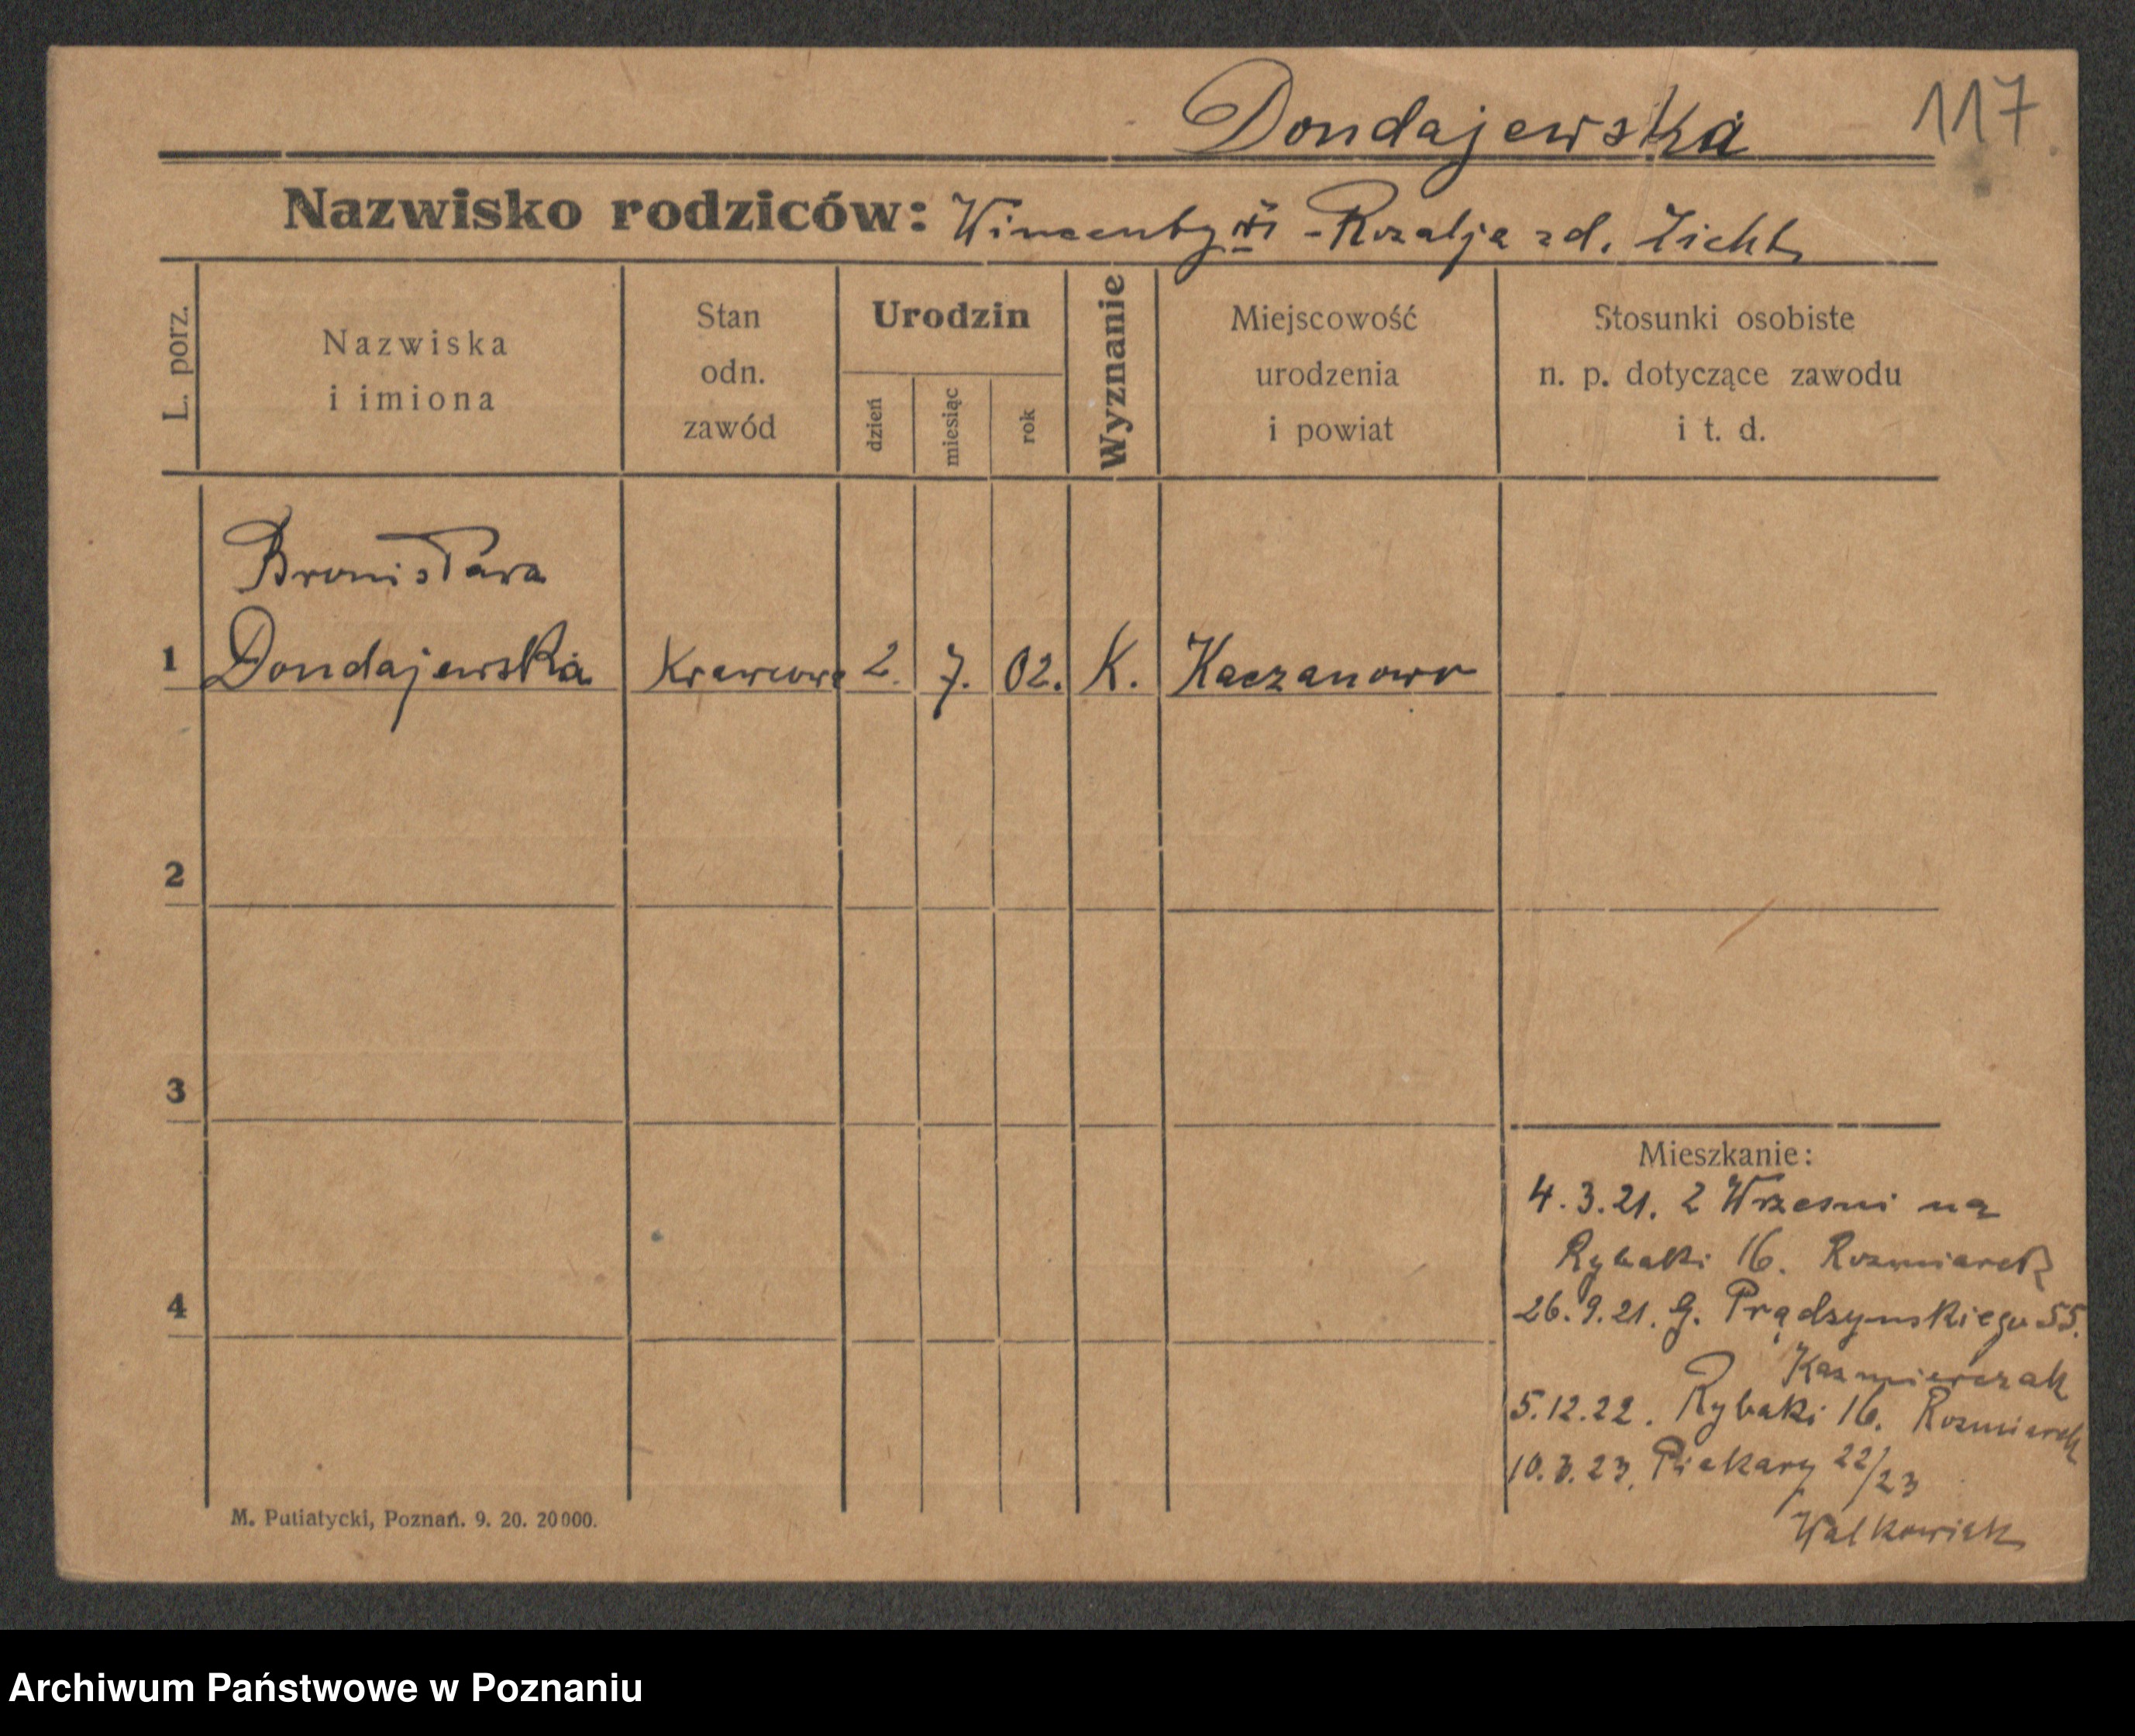 Dondajewska
117
Nazwisko rodziców: Wincenty - Rozalja zd. Licht
L. porz.
Nazwiska
i imiona
Stan
odn.
zawód
Urodzin
dzień
miesiąc
rok
Wyznanie
Miejscowość
urodzenia
i powiat
Stosunki osobiste
n. p. dotyczące zawodu
i t. d.
Bronisława
1 Dondajewska Krawcowa 2. 7. 02. K. Kaczanowo
2
3
4
Mieszkanie:
4.3.21. z Wrzesni na
Rybaki 16. Rozmiarek
26.9.21. G. Prądzynskiego 55.
Kazmierczak
5.12.22. Rybaki 16. Rozmiarek
10.3.23. Piekary 22/23
Walkowiak
M. Putiatycki, Poznań. 9. 20. 20000.
Archiwum Państwowe w Poznaniu